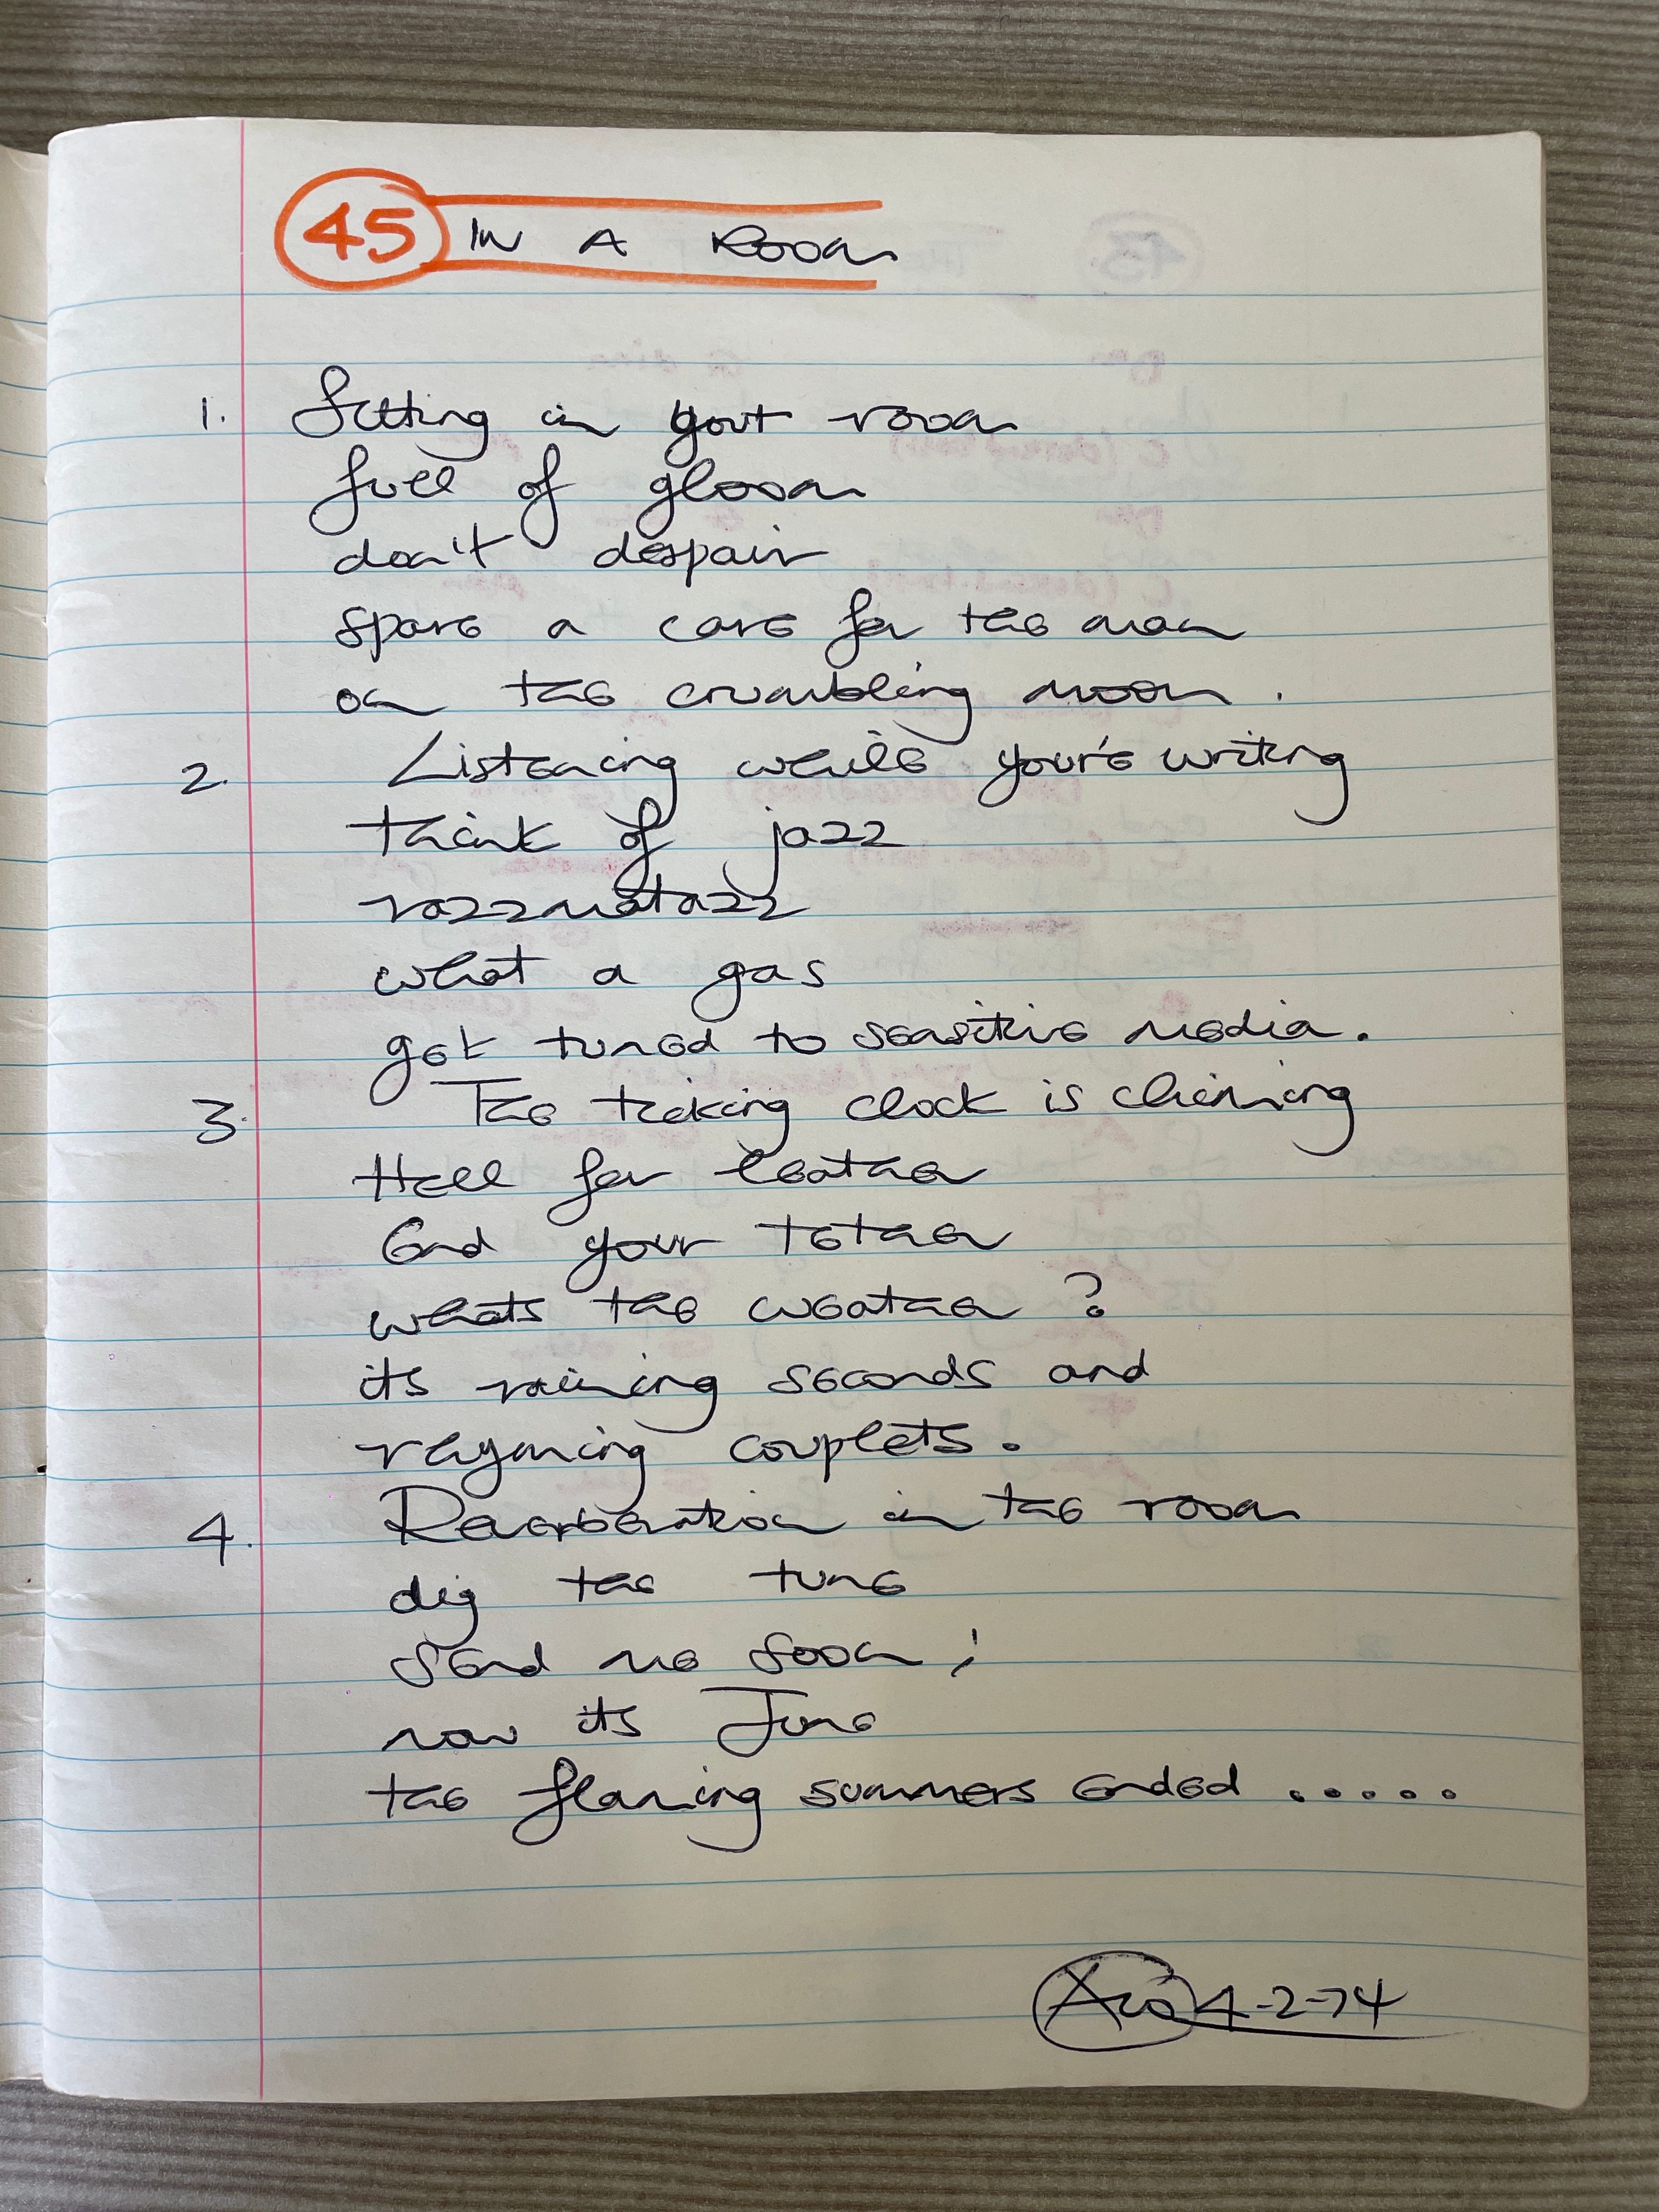 45 IN A ROOM
1. Sitting in your room
full of gloom
don't despair
spare a care for the man
on the crumbling moon.
2. Listening while you're writing
think of jazz
razzmatazz
what a gas
get tuned to sensitive media.
3. The ticking clock is chiming
Hell for leather
End your tether
whats the weather?
its raining seconds and
rhyming couplets.
4. Reverberation in the room
dig the tune
send me soon;
now its June
the flaming summers ended .....
4-2-74